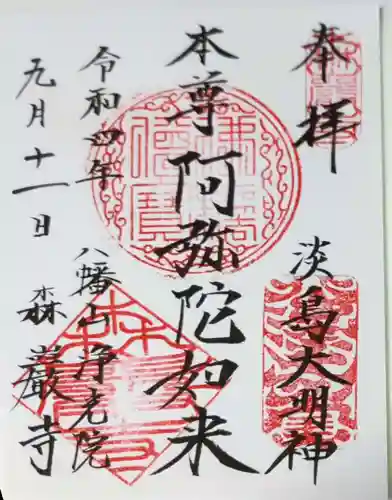 奉拝
淡島大明神
本尊阿弥陀如来
令和四年
九月十一日
八幡山浄光院
森巌寺